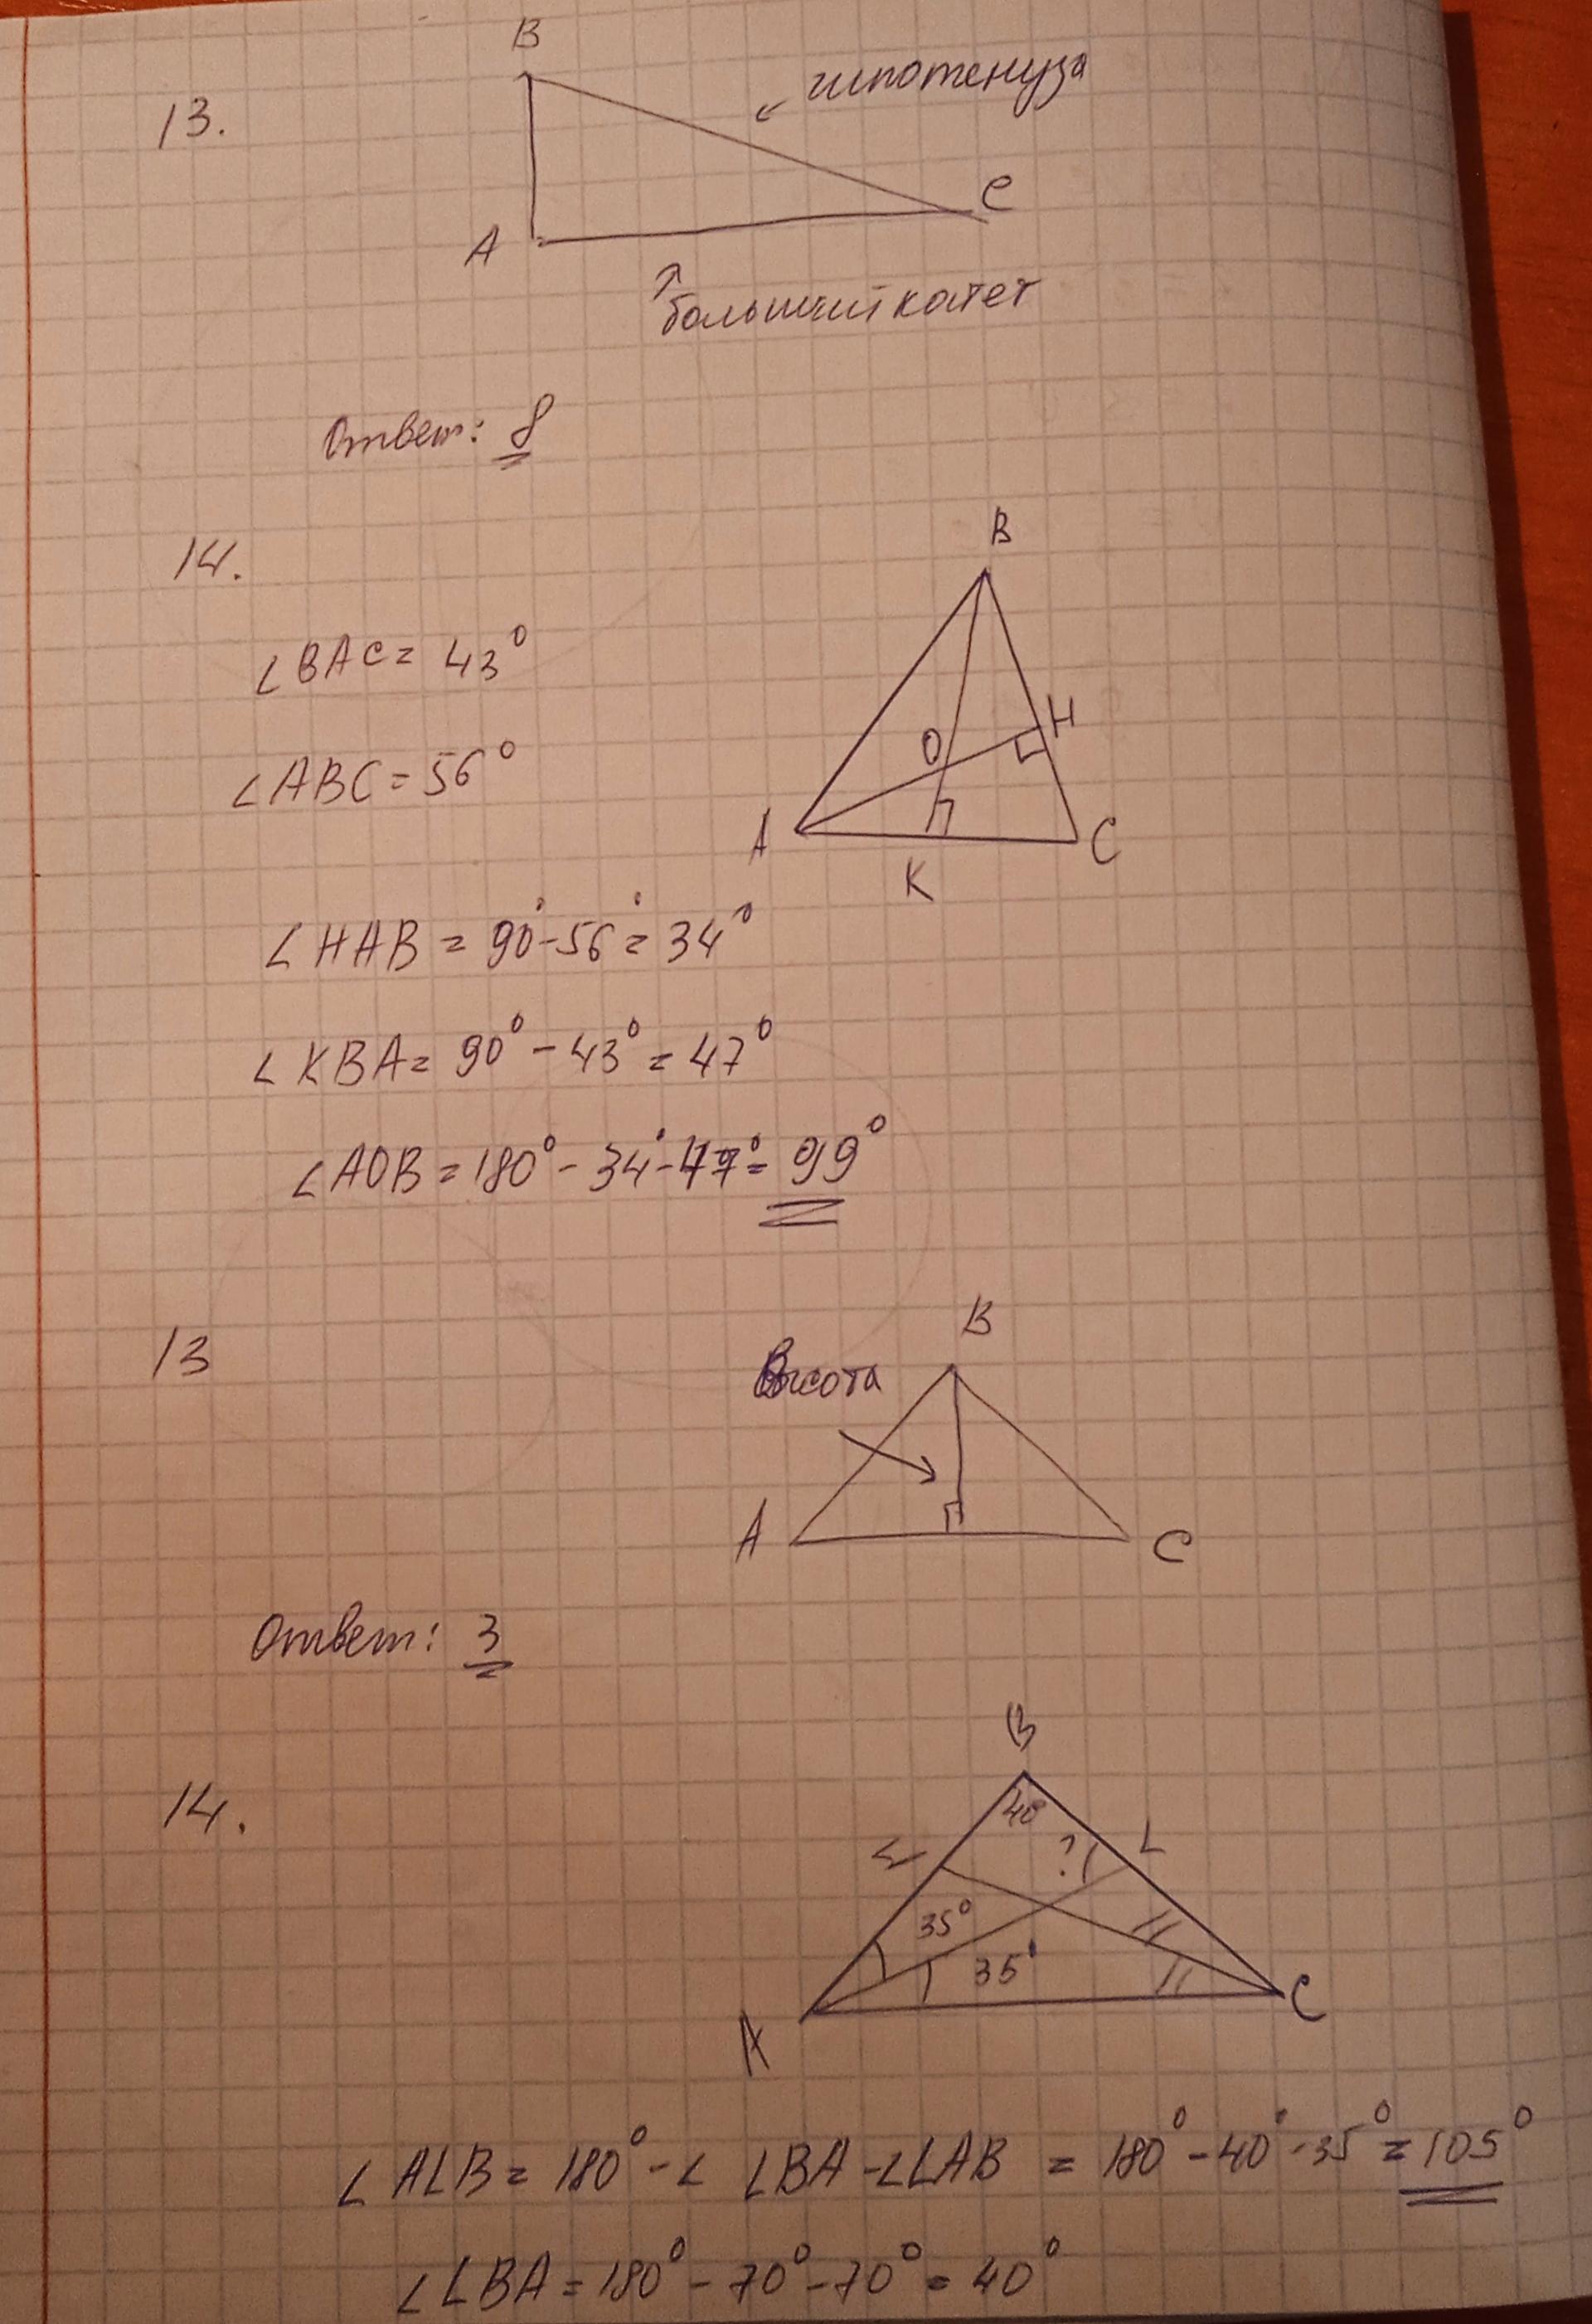 13.
B
гипотенуза
A
C
больший катет
Ответ: 8
14.
B
∠BAC = 43°
H
O
∠ABC = 56°
A
C
K
∠HAB = 90° - 56° = 34°
∠KBA = 90° - 43° = 47°
∠AOB = 180° - 34° - 47° = 99°
13
B
Высота
A
C
Ответ: 3
14.
B
40°
? L
35°
35°
A
C
∠ALB = 180° - ∠ LBA - ∠LAB = 180° - 40° - 35° = 105°
∠LBA = 180° - 70° - 70° = 40°